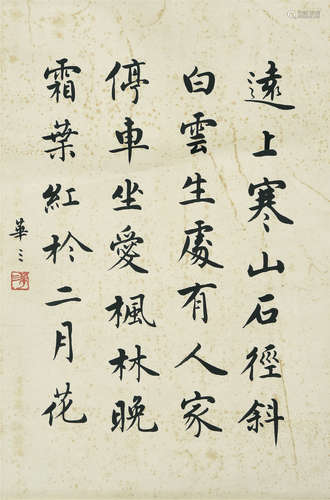 遠上寒山石徑斜
白雲生處有人家
停車坐愛楓林晚
霜葉紅於二月花
華三